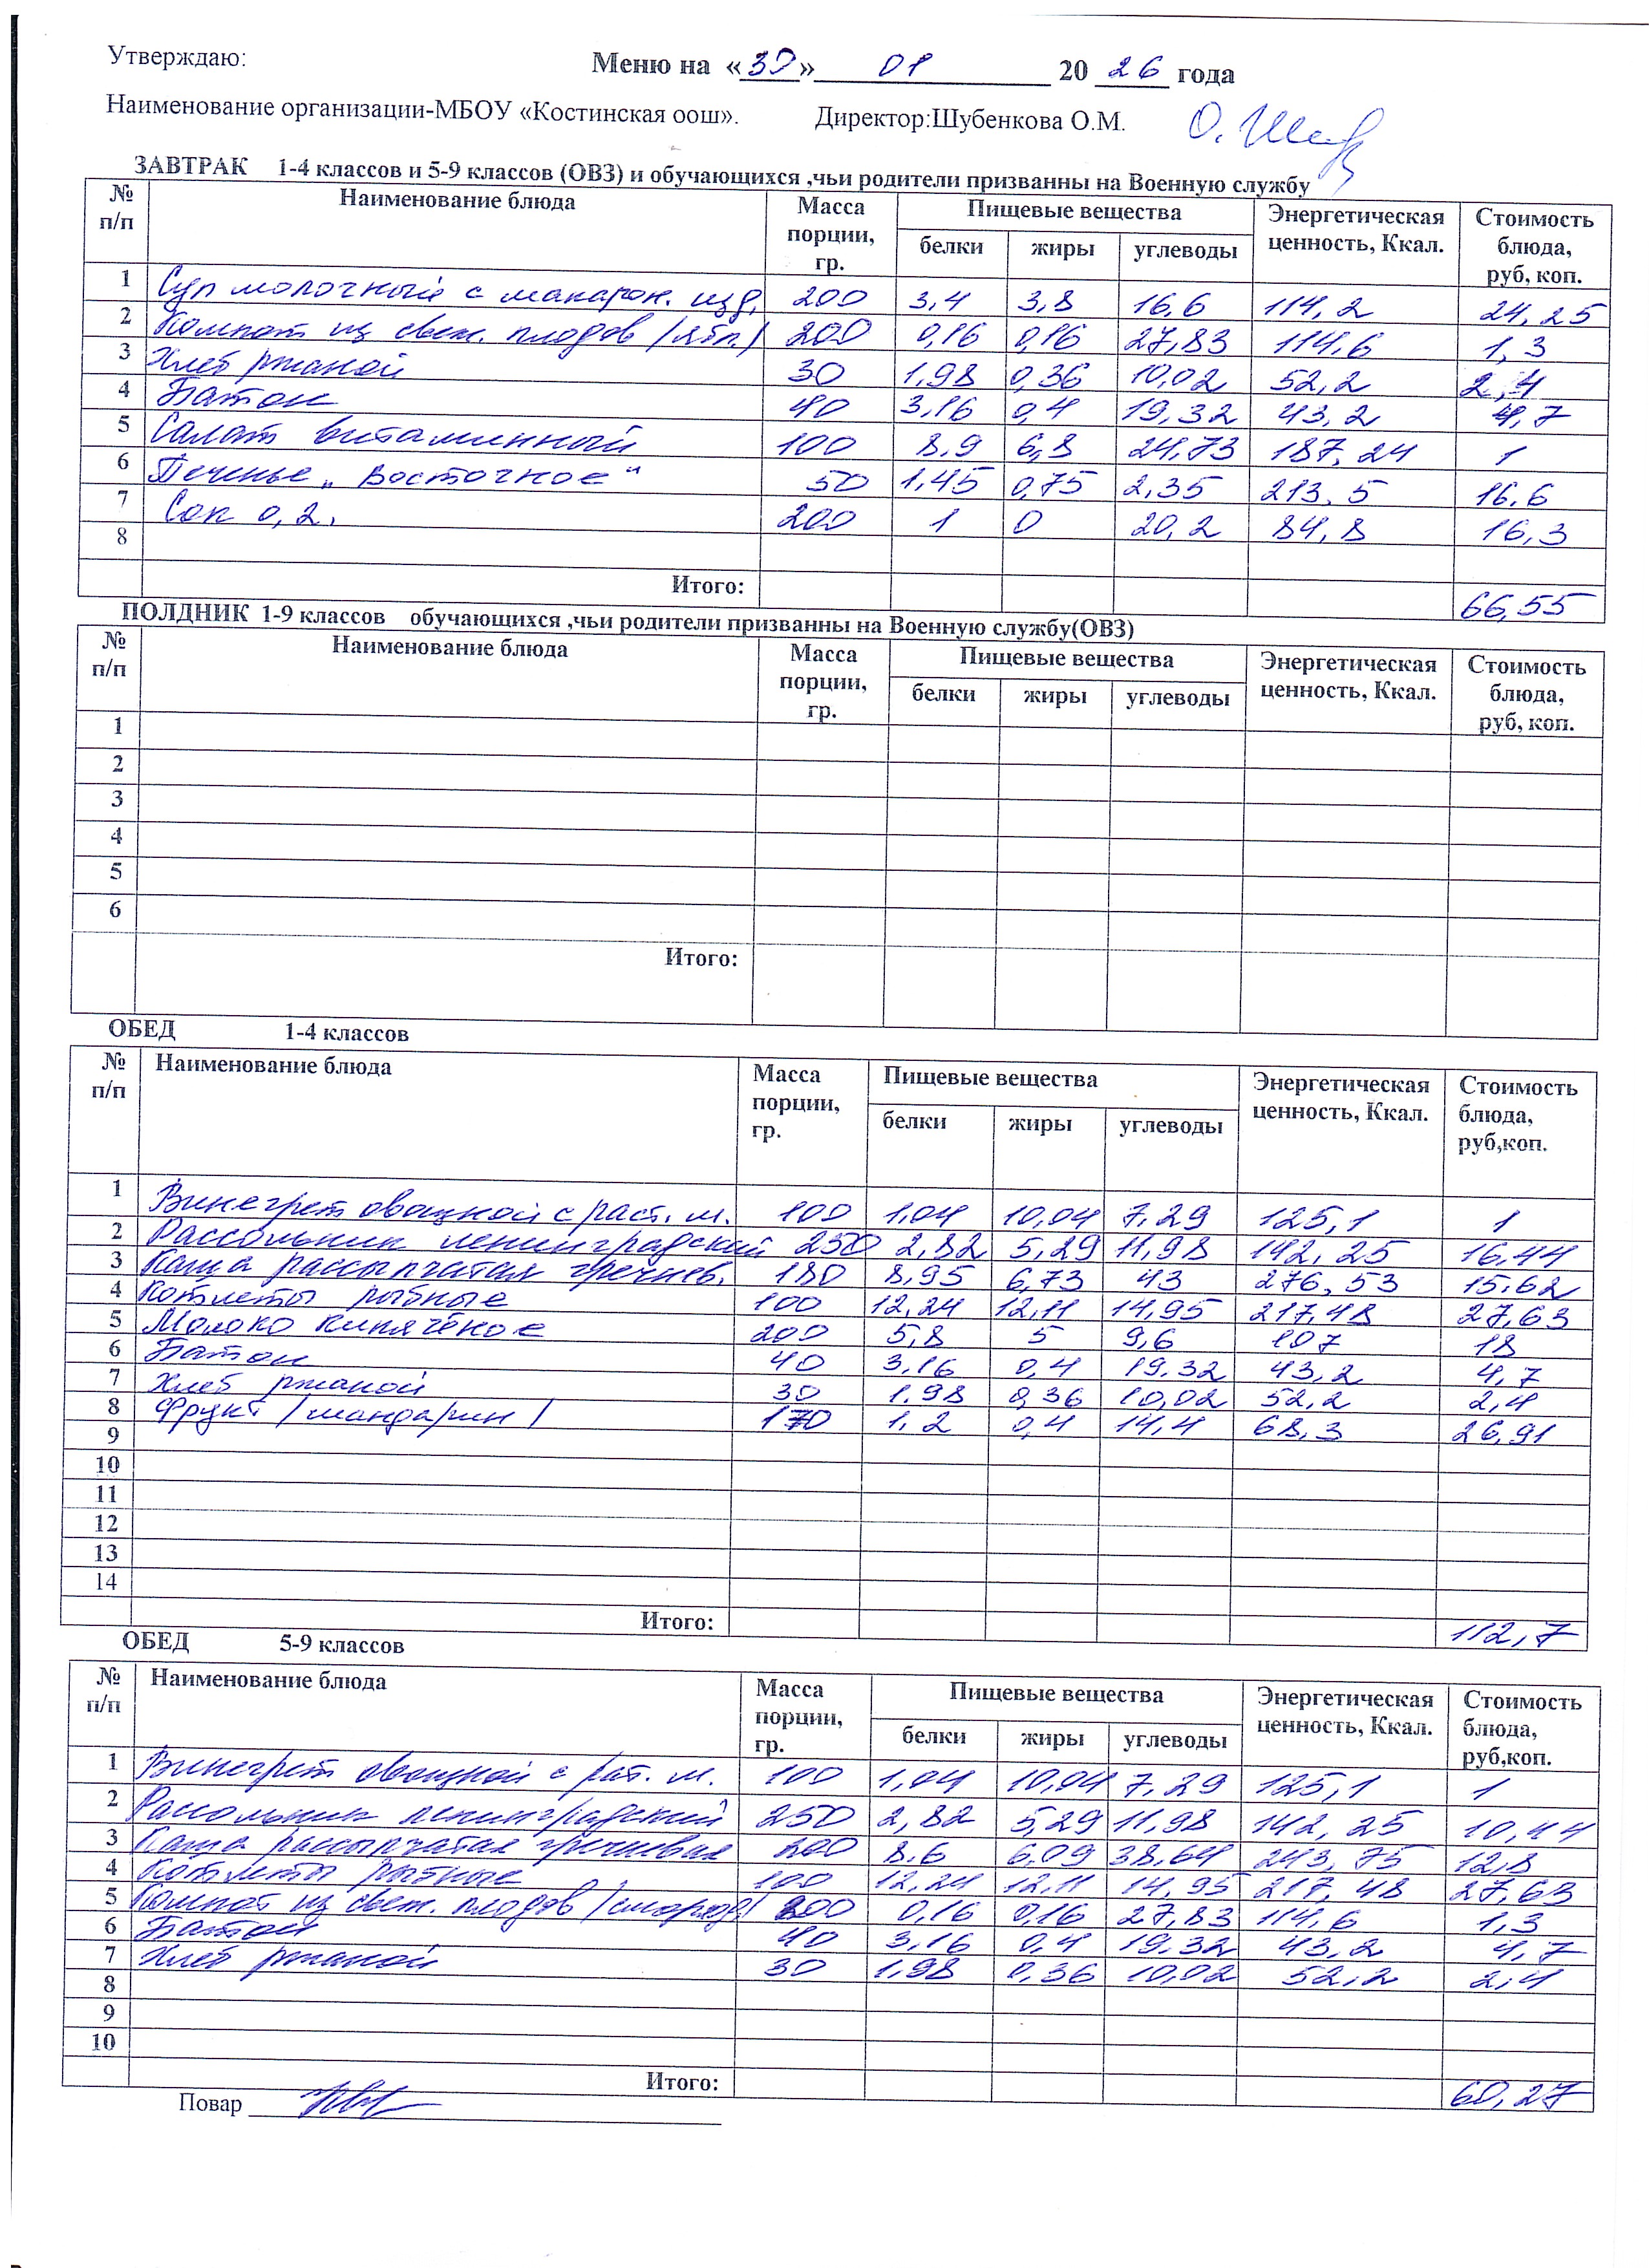 Утверждаю:
Меню на «30» 01 20 26 года
Наименование организации-МБОУ «Костинская оош». Директор:Шубенкова О.М.
ЗАВТРАК 1-4 классов и 5-9 классов (ОВЗ) и обучающихся ,чьи родители призванны на Военную службу
№ п/п Наименование блюда Масса порции, гр. Пищевые вещества Энергетическая ценность, Ккал. Стоимость блюда, руб, коп.
белки жиры углеводы
1 Суп молочный с макарон. изд. 200 3,4 3,8 16,6 114,2 24,25
2 Компот из свеж. плодов (ябл.) 200 0,16 0,16 27,83 114,6 1,3
3 Хлеб ржаной 30 1,98 0,36 10,02 52,2 2,4
4 Батон 40 3,16 0,4 19,32 43,2 4,7
5 Салат витаминный 100 8,9 6,8 24,73 187,24 1
6 Печенье „Восточное“ 50 1,45 0,75 2,35 213,5 16,6
7 Сок 0,2. 200 1 0 20,2 84,8 16,3
8
Итого: 66,55
ПОЛДНИК 1-9 классов обучающихся ,чьи родители призванны на Военную службу(ОВЗ)
№ п/п Наименование блюда Масса порции, гр. Пищевые вещества Энергетическая ценность, Ккал. Стоимость блюда, руб, коп.
белки жиры углеводы
1
2
3
4
5
6
Итого:
ОБЕД 1-4 классов
№ п/п Наименование блюда Масса порции, гр. Пищевые вещества Энергетическая ценность, Ккал. Стоимость блюда, руб,коп.
белки жиры углеводы
1 Винегрет овощной с раст. м. 100 1,04 10,04 7,29 125,1 1
2 Рассольник ленинградский 250 2,82 5,29 11,98 142,25 16,44
3 Каша рассыпчатая гречнев. 180 8,95 6,73 43 276,53 15,62
4 Котлеты рыбные 100 12,24 12,11 14,95 217,48 27,63
5 Молоко кипячёное 200 5,8 5 9,6 107 18
6 Батон 40 3,16 0,4 19,32 43,2 4,7
7 Хлеб ржаной 30 1,98 0,36 10,02 52,2 2,4
8 Фрукт /мандарин/ 170 1,2 0,4 14,4 68,3 26,91
9
10
11
12
13
14
Итого: 112,7
ОБЕД 5-9 классов
№ п/п Наименование блюда Масса порции, гр. Пищевые вещества Энергетическая ценность, Ккал. Стоимость блюда, руб,коп.
белки жиры углеводы
1 Винегрет овощной с рат. м. 100 1,04 10,04 7,29 125,1 1
2 Рассольник ленинградский 250 2,82 5,29 11,98 142,25 10,44
3 Каша рассыпчатая гречневая 200 8,6 6,09 38,64 243,75 12,8
4 Котлеты рыбные 100 12,24 12,11 14,95 217,48 27,63
5 Компот из свеж. плодов 200 0,16 0,16 27,83 114,6 1,3
6 Батон 40 3,16 0,4 19,32 43,2 4,7
7 Хлеб ржаной 30 1,98 0,36 10,02 52,2 2,4
8
9
10
Итого: 60,27
Повар